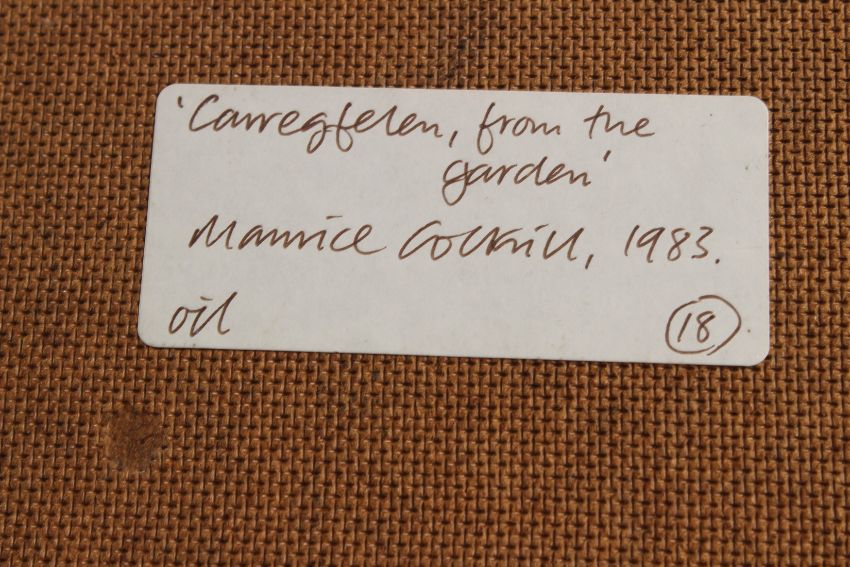 'Carregfelen, from the
garden'
Maurice Cockrill, 1983.
oil
18